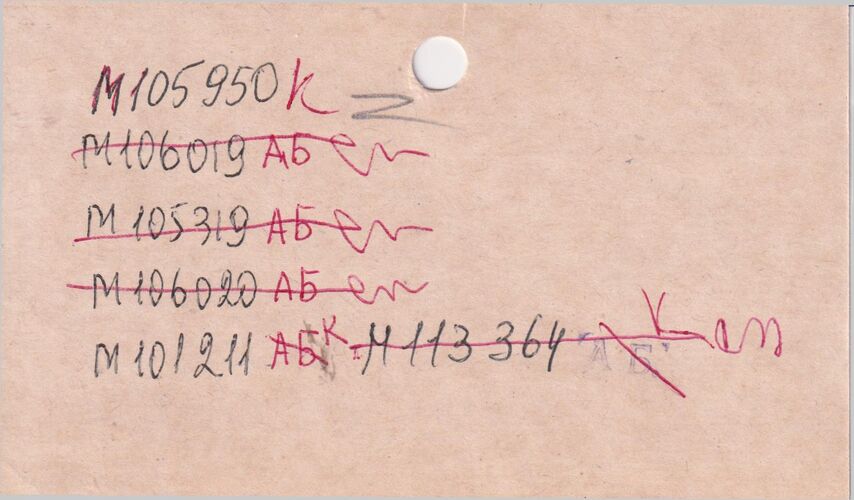 М105950 К
М106019 АБ
М105319 АБ
М106020 АБ
М101211 АБ К М113364 "АБ" К